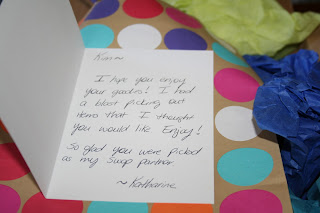 I hope you enjoy
your goodies! I had
a blast picking out
items that I thought
you would like. Enjoy!
So glad you were picked
as my Swap partner
~Katharine